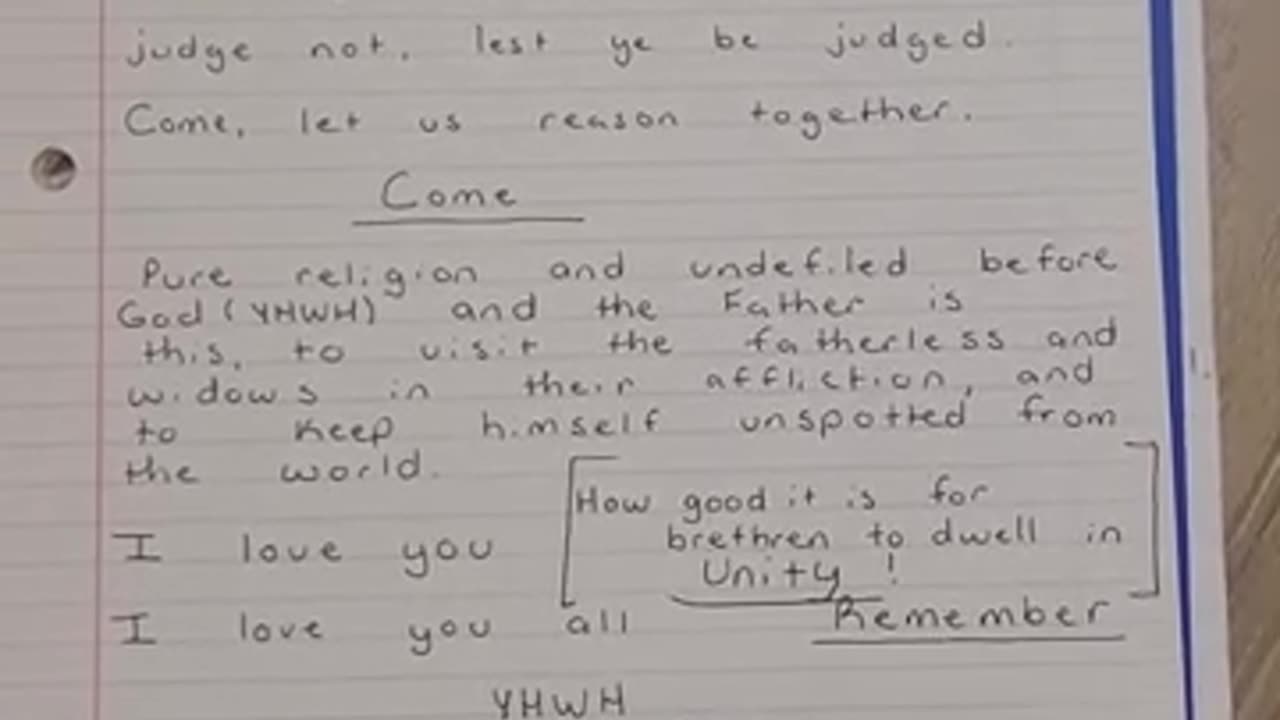 judge not, lest ye be judged.
Come, let us reason together.
Come
Pure religion and undefiled before
God (YHWH) and the Father is
this, to visit the fatherless and
widows in their affliction, and
to keep himself unspotted from
the world.
[How good it is for
brethren to dwell in
Unity !]
I love you
I love you all
Remember
YHWH